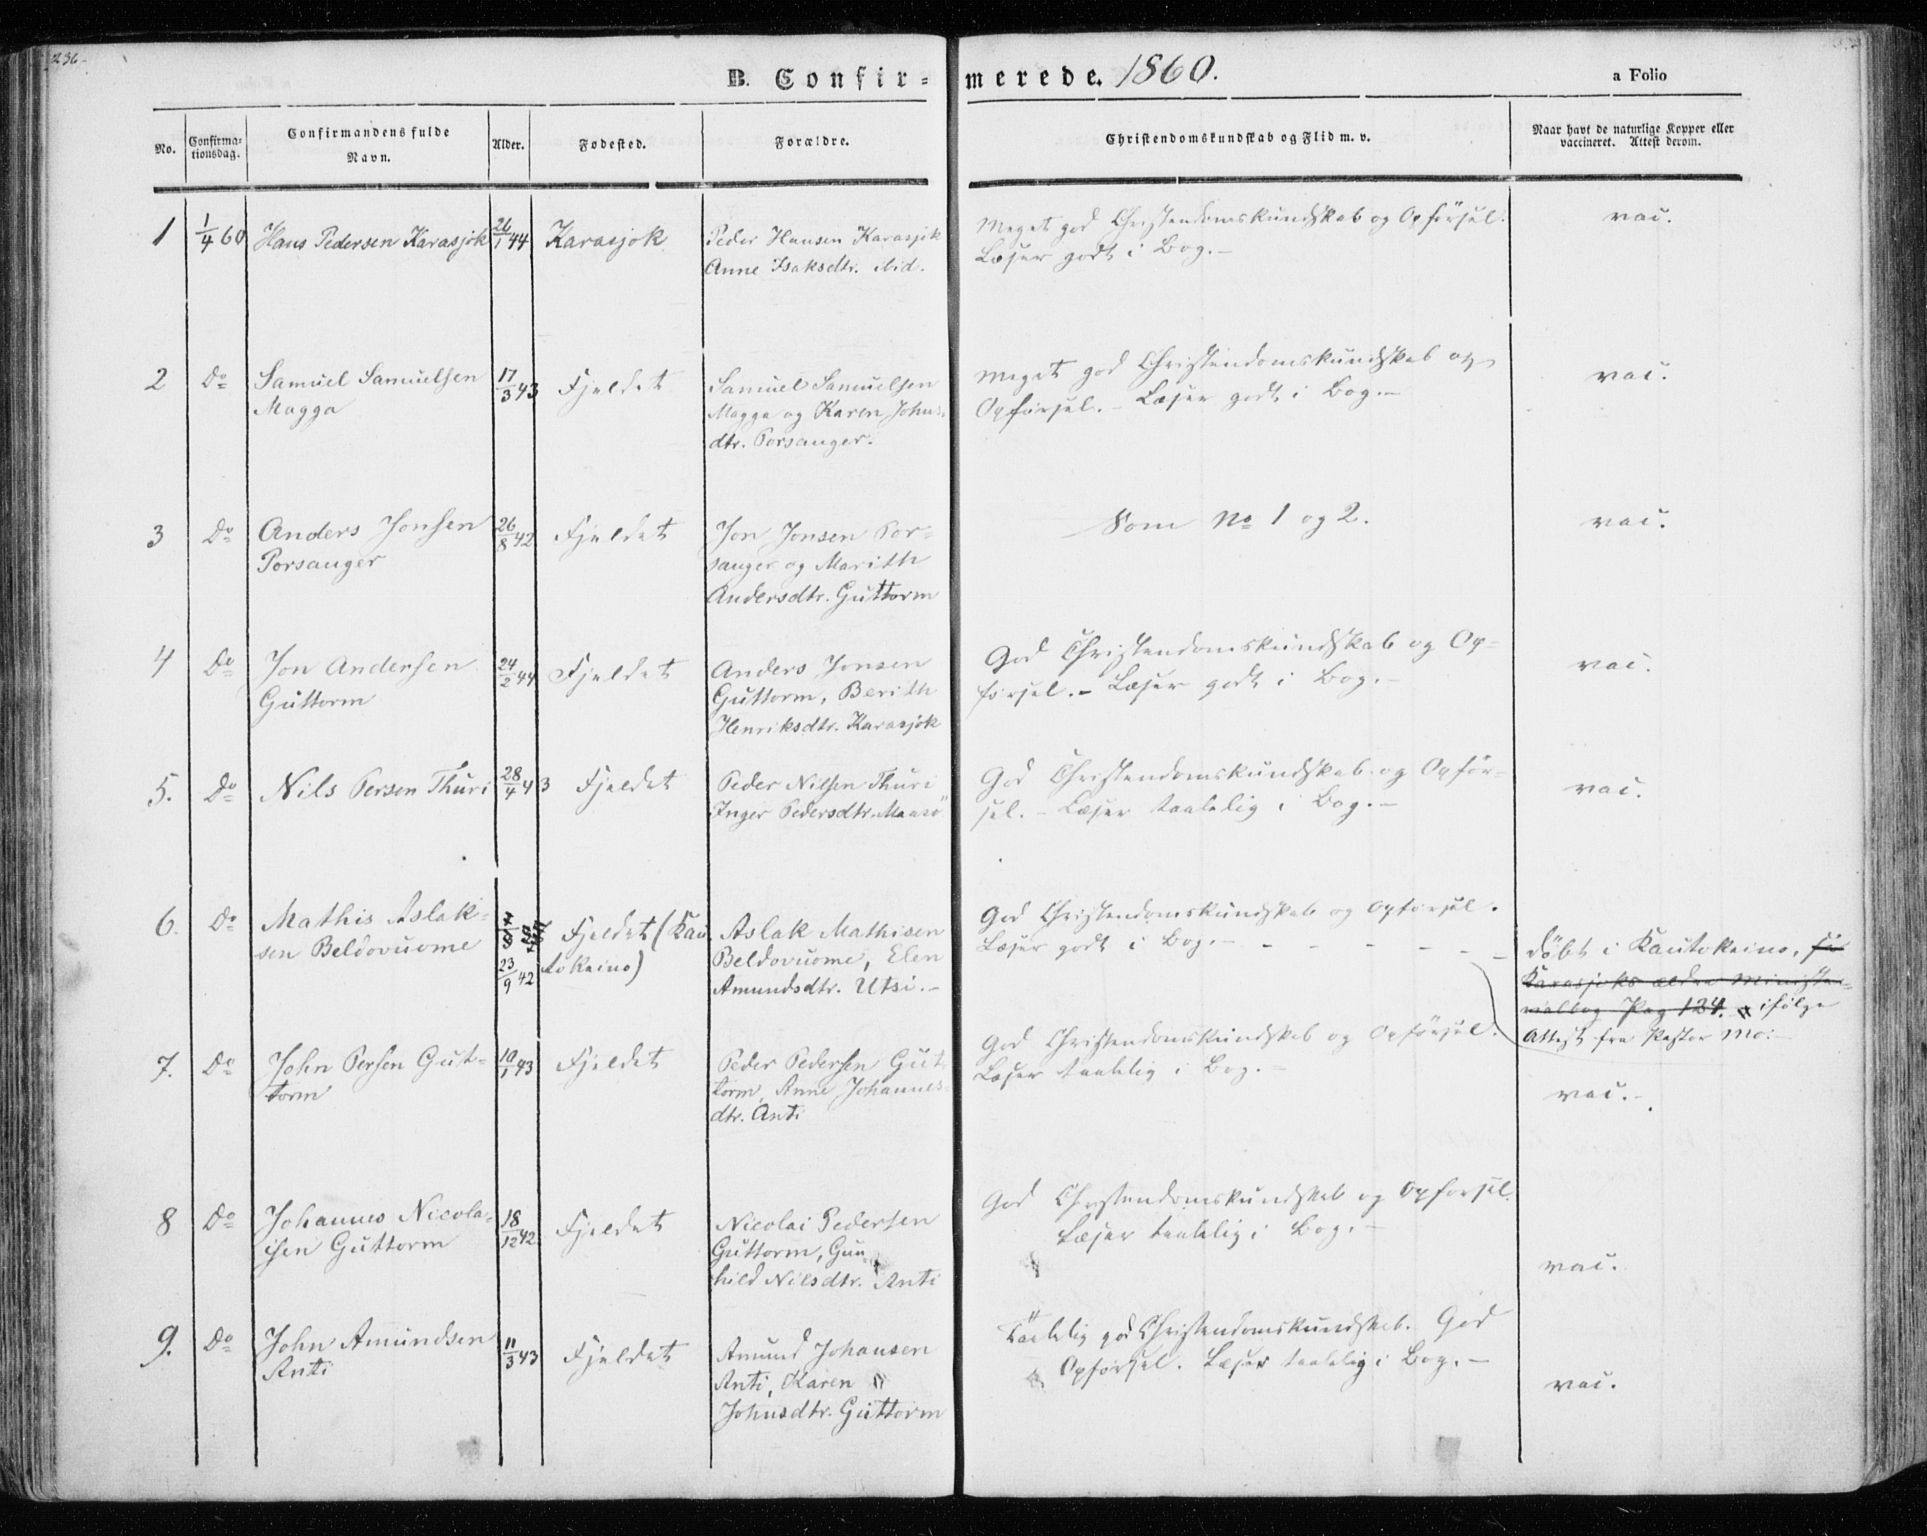 236
B. Confir-merede. 1860.
a Folio
No.
Confirma-
tionsdag.
Confirmandens fulde
Navn.
Alder.
Fødested.
Forældre.
Christendomskundskab og Flid m. v.
Naar havt de naturlige Kopper eller
vaccineret. Attest derom.
1 1/4 60 Hans Pedersen Karasjok 26/1 44 Karasjok
Peder Hansen Karasjok
Anne Isaksdtr. ibid.
Meget god Christendomskundskab og Opførsel.
Læser godt i Bog.-
vac.
2 Do Samuel Samuelsen
Magga
17/3 43 Fjeldet
Samuel Samuelsen
Magga og Karen Johns-
dtr. Porsanger.
Meget god Christendomskundskab og
Opførsel. - Læser godt i Bog.-
vac.
3 Do Anders Jonsen
Porsanger
26/8 42 Fjeldet
Jon Jonsen Por-
sanger og Marith
Andersdtr. Guttorm
Som No 1 og 2.
vac.
4 Do Jon Andersen
Guttorm
24/2 44 Fjeldet
Anders Jonsen
Guttorm, Berith
Henriksdtr. Karasjok
God Christendomskundskab og Op-
førsel. - Læser godt i Bog.-
vac.
5. Do Nils Persen Thuri 28/4 43 Fjeldet
Peder Nilsen Thuri
Inger Pedersdtr. Maasö
God Christendomskundskab og Opfør-
sel. - Læser taalelig i Bog.-
vac.
6. Do Mathis Aslak-
sen Beldovuome
23/9 42
Fjeldet (Kau
tokeino)
Aslak Mathisen
Beldovuome, Elen
Amundsdtr. Utsi.-
God Christendomskundskab og Opførsel.
Læser godt i Bog.-
döbt i Kautokeino,
Karasjoks ældre Ministe-
rialbog Pag 124. ifölge
Attest fra Pastor Mo:-
7. Do John Persen Gut-
torm
10/1 43 Fjeldet
Peder Pedersen Gut-
torm, Anne Johannes-
dtr. Anti
God Christendomskundskab og Opførsel.
Læser taalelig i Bog.-
vac.-
8 Do Johannes Nicola-
isen Guttorm
18/12 42 Fjeldet
Nicolai Pedersen
Guttorm, Gun
hild Nilsdtr. Anti
God Christendomskundskab og Opførsel.
Læser taalelig i Bog.-
vac.
9. Do John Amundsen
Anti
11/3 43 Fjeldet
Amund Johansen
Anti, Karen
Johnsdtr. Guttorm
Taalelig god Christendomskundskab. God
Opførsel. Læser taalelig i Bog.-
vac.